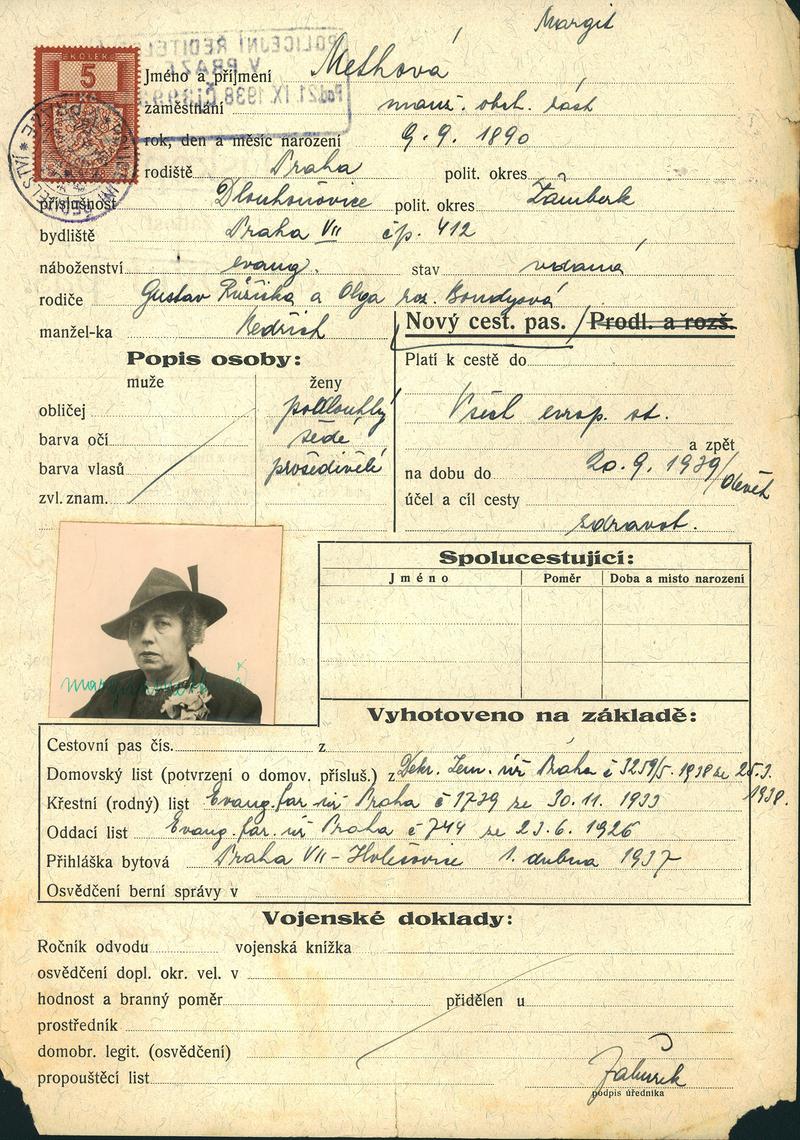 Margit
KOLEK
5
POLICEJNÍ ŘEDITEL
V PRAZE
21. IX. 1938
Jméno a příjmení Methová
zaměstnání manž. obch. zást
rok, den a měsíc narození 9. 9. 1890
rodiště Praha polit. okres
příslušnost Dlouhoňovice polit. okres Žamberk
bydliště Praha VII čp. 412
náboženství evang. stav vdaná
rodiče Gustav Růžička a Olga roz. Bondyová
manžel-ka Bedřich
Nový cest. pas. / Prodl. a rozš.
Popis osoby:
muže ženy
obličej podlouhlý
barva očí šedé
barva vlasů prošedivělé
zvl. znam.
Platí k cestě do
Všech evrop. st.
a zpět
na dobu do 20. 9. 1939/devět
účel a cíl cesty
zdravot.
Spolucestující:
Jméno Poměr Doba a místo narození
Vyhotoveno na základě:
Cestovní pas čís. z
Domovský list (potvrzení o domov. přísluš.) z Dekr. Zem. úř Praha č 3259/5. 1938 ze 25.3. 1938.
Křestní (rodný) list Evang. far. úř Praha č 1739 ze 30. 11. 1933
Oddací list Evang. far. úř Praha č 744 ze 23. 6. 1926
Přihláška bytová Praha VII - Holešovice 1. dubna 1937
Osvědčení berní správy v
Vojenské doklady:
Ročník odvodu vojenská knížka
osvědčení dopl. okr. vel. v
hodnost a branný poměr přidělen u
prostředník
domobr. legit. (osvědčení)
propouštěcí list
podpis úředníka